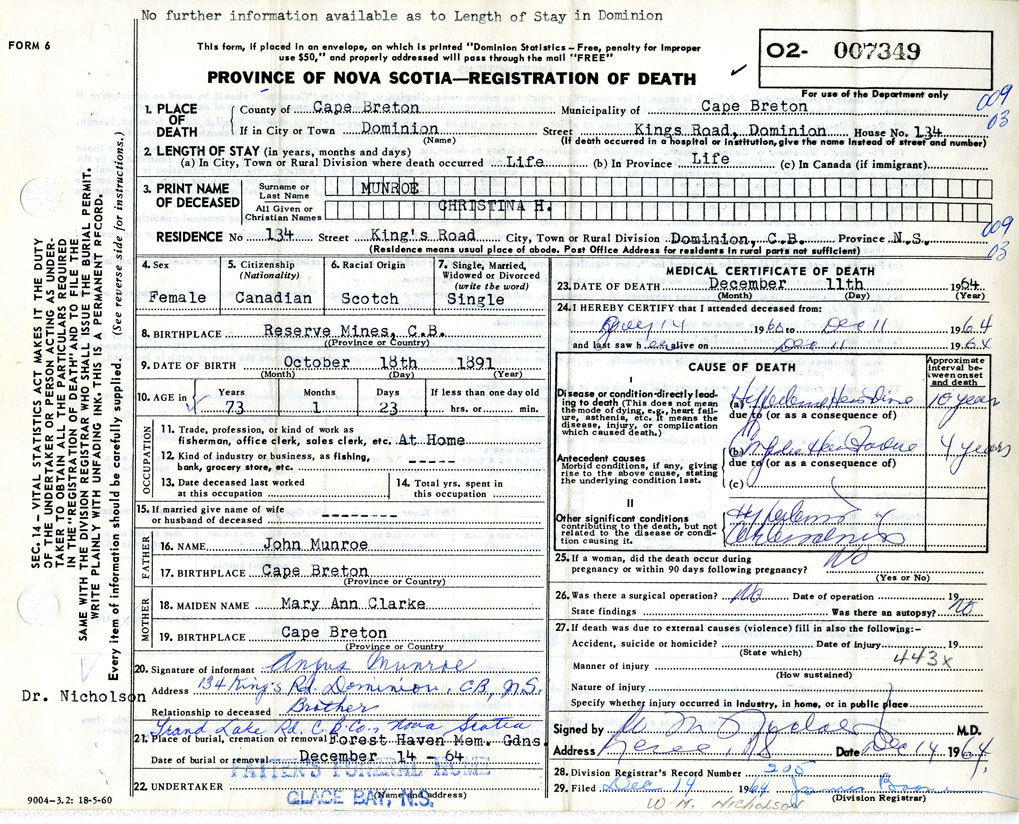 No further information available as to Length of Stay in Dominion
FORM 6
This form, if placed in an envelope, on which is printed "Dominion Statistics – Free, penalty for improper
use $50," and properly addressed will pass through the mail "FREE"
PROVINCE OF NOVA SCOTIA—REGISTRATION OF DEATH
O2- 007349
For use of the Department only
009
03
1. PLACE OF DEATH
County of Cape Breton Municipality of Cape Breton
If in City or Town Dominion Street Kings Road, Dominion House No. 134
(Name) (If death occurred in a hospital or institution, give the name instead of street and number)
2. LENGTH OF STAY (in years, months and days)
(a) In City, Town or Rural Division where death occurred Life (b) In Province Life (c) In Canada (if immigrant)
3. PRINT NAME OF DECEASED
Surname or Last Name MUNROE
All Given or Christian Names CHRISTINA H.
009
03
RESIDENCE No 134 Street King's Road City, Town or Rural Division Dominion, C.B. Province N.S.
(Residence means usual place of abode. Post Office Address for residents in rural parts not sufficient)
4. Sex
Female
5. Citizenship
(Nationality)
Canadian
6. Racial Origin
Scotch
7. Single, Married,
Widowed or Divorced
(write the word)
Single
8. BIRTHPLACE Reserve Mines, C.B.
((Province or Country)
9. DATE OF BIRTH October 18th 1891
(Month) (Day) (Year)
10. AGE in
Years Months Days If less than one day old
73 1 23 hrs. or min.
OCCUPATION
11. Trade, profession, or kind of work as
fisherman, office clerk, sales clerk, etc. At Home
12. Kind of industry or business, as fishing,
bank, grocery store, etc. -----
13. Date deceased last worked
at this occupation
14. Total yrs. spent in
this occupation
15. If married give name of wife
or husband of deceased --------
FATHER
16. NAME John Munroe
17. BIRTHPLACE Cape Breton
(Province or Country)
MOTHER
18. MAIDEN NAME Mary Ann Clarke
19. BIRTHPLACE Cape Breton
(Province or Country
20. Signature of informant Angus Munroe
Address 134 King's Rd. Dominion, C.B., N.S.
Relationship to deceased Brother
Grand Lake Rd. C.B.Co., Nova Scotia
21. Place of burial, cremation or removal Forest Haven Mem. Gdns.
Date of burial or removal December 14 - 64
22. UNDERTAKER
(Name and address)
PATTEN'S FUNERAL HOME
GLACE BAY, N.S.
9004–3.2: 18-5-60
MEDICAL CERTIFICATE OF DEATH
23. DATE OF DEATH December 11th 1964
(Month) (Day) (Year)
24. I HEREBY CERTIFY that I attended deceased from:
14 1960 to Dec 11 1964
and last saw her alive on Dec 11 1964
CAUSE OF DEATH
Approximate
interval be-
tween onset
and death
I
Disease or condition directly lead-
ing to death (This does not mean
the mode of dying, e.g., heart fail-
ure, asthenia, etc. It means the
disease, injury, or complication
which caused death.)
(a) 10 years
due to (or as a consequence of)
Antecedent causes
Morbid conditions, if any, giving
rise to the above cause, stating
the underlying condition last.
(b) 4 years
due to (or as a consequence of)
(c)
II
Other significant conditions
contributing to the death, but not
related to the disease or condi-
tion causing it.
25. If a woman, did the death occur during
pregnancy or within 90 days following pregnancy? No
(Yes or No)
26. Was there a surgical operation? No Date of operation 19
State findings Was there an autopsy? No
27. If death was due to external causes (violence) fill in also the following:–
Accident, suicide or homicide? Date of injury 19
(State which)
443x
Manner of injury
(How sustained)
Nature of injury
Specify whether injury occurred in industry, in home, or in public place
Signed by M.D.
Address Date Dec 14 1964
28. Division Registrar's Record Number 205
29. Filed Dec 14 1964
(Division Registrar)
W. M. Nicholson
SEC. 14 – VITAL STATISTICS ACT MAKES IT THE DUTY
OF THE UNDERTAKER OR PERSON ACTING AS UNDER-
TAKER TO OBTAIN ALL THE PARTICULARS REQUIRED
IN THE "REGISTRATION OF DEATH" AND TO FILE THE
SAME WITH THE DIVISION REGISTRAR WHO SHALL ISSUE THE BURIAL PERMIT.
WRITE PLAINLY WITH UNFADING INK. THIS IS A PERMANENT RECORD.
Every item of information should be carefully supplied. (See reverse side for instructions.)
Dr. Nicholson